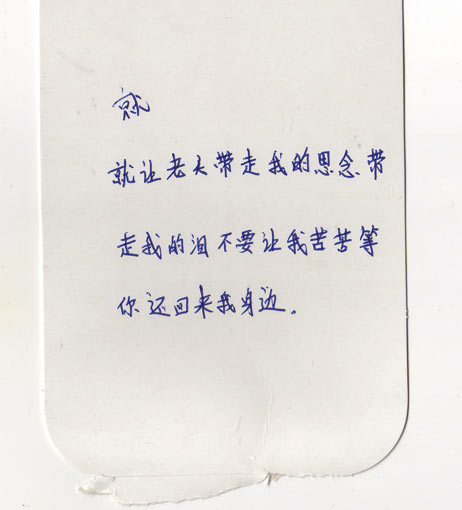 就
就让老大带走我的思念带
走我的泪不要让我苦苦等
你还回来我身边。